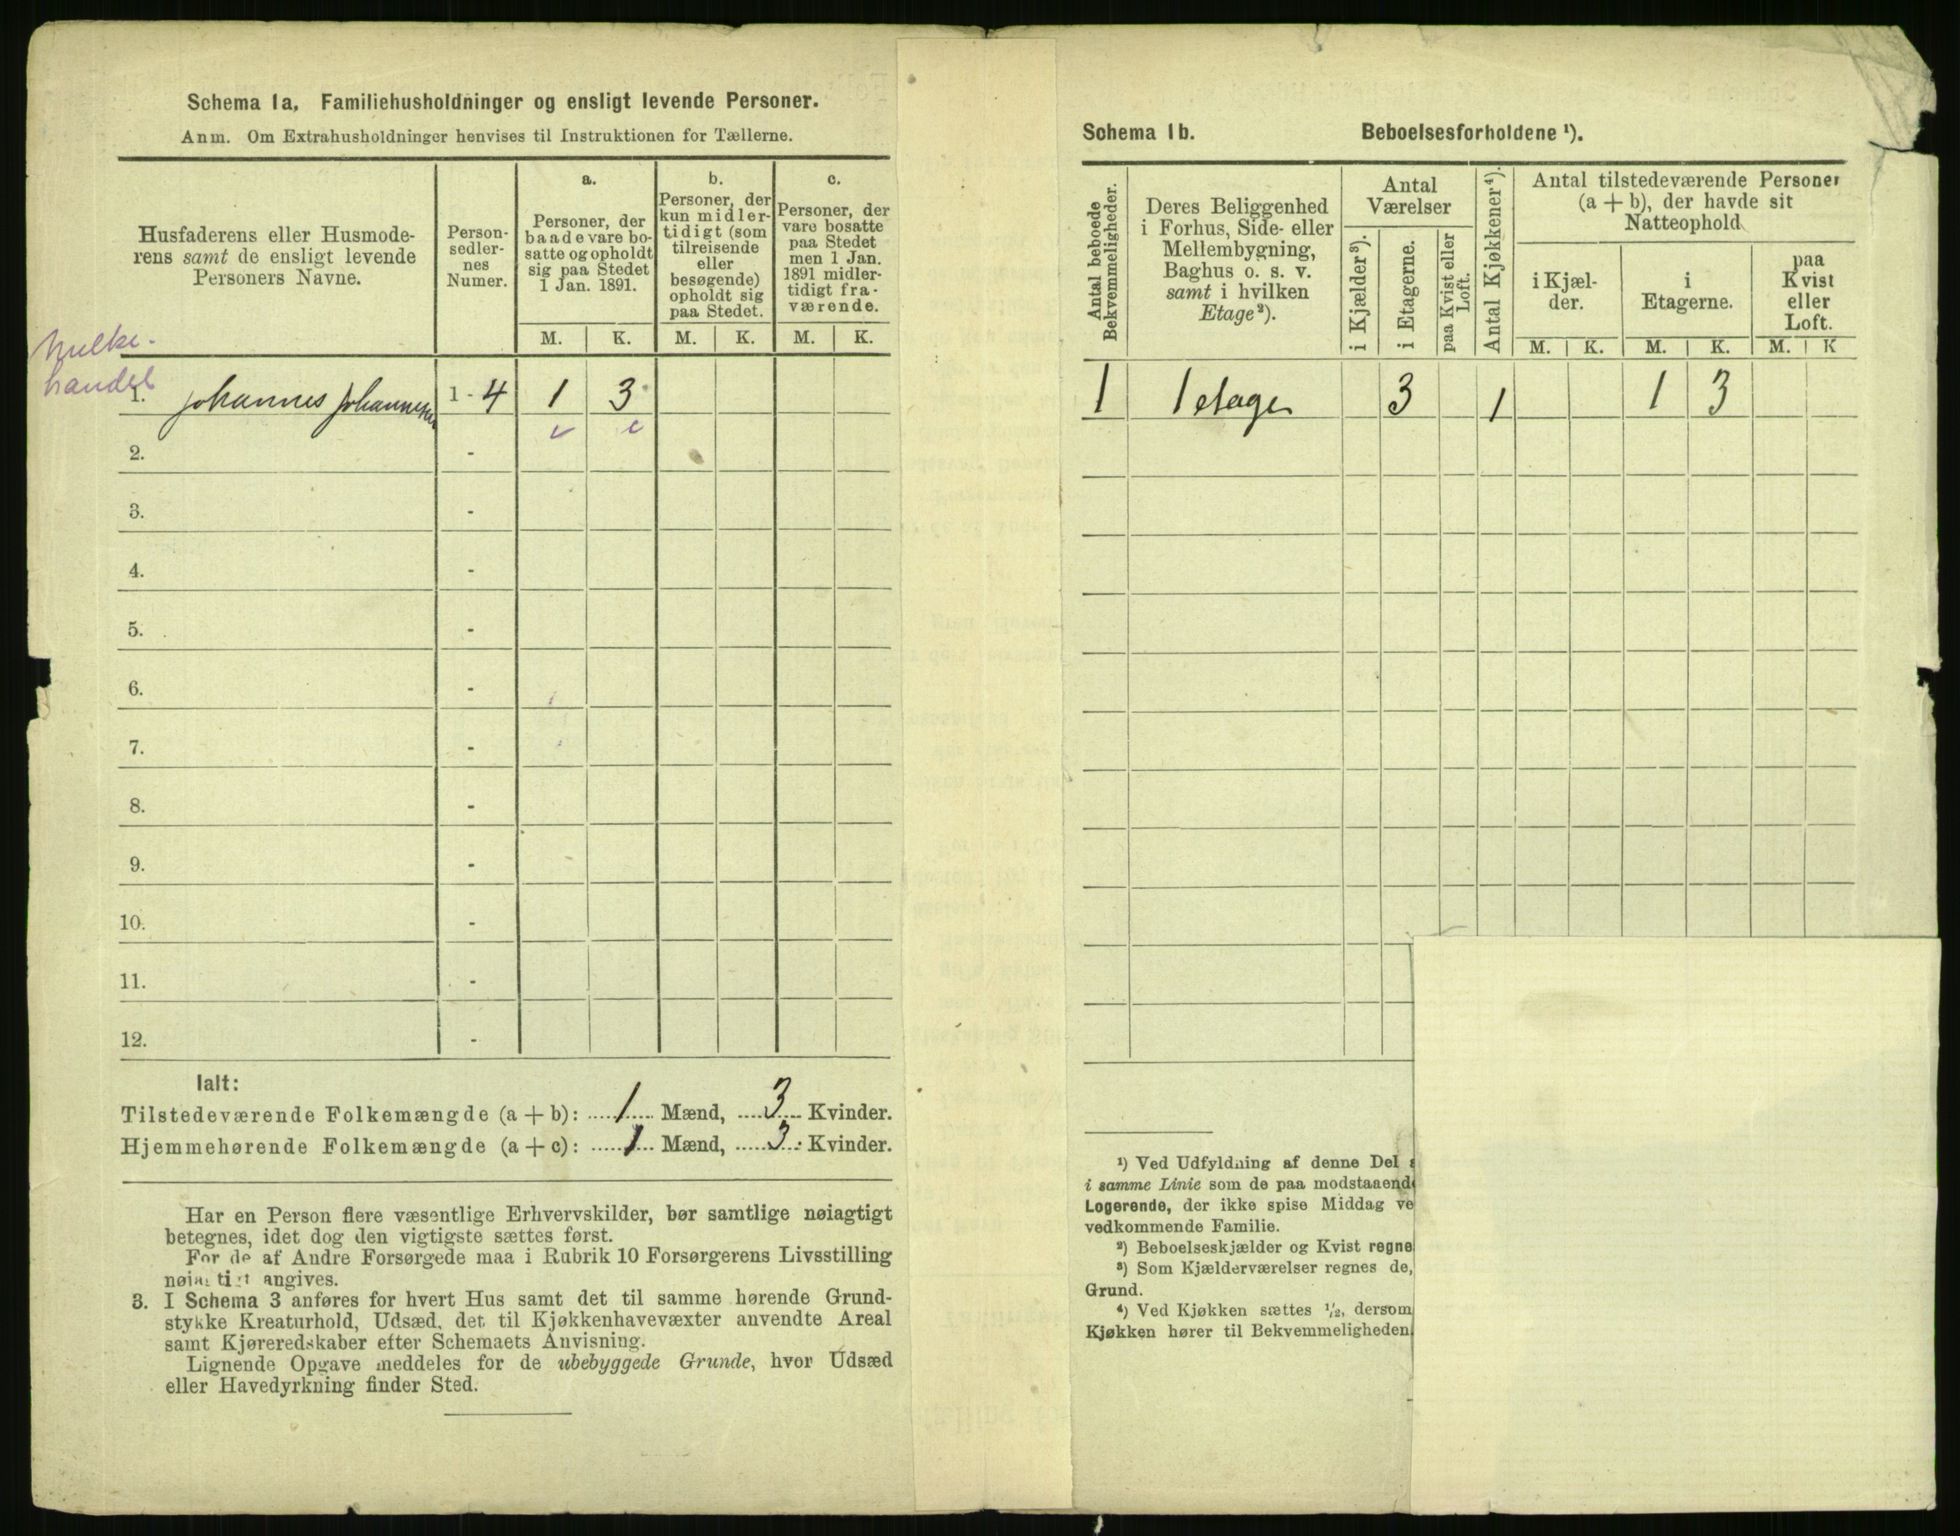 Schema 1a, Familiehusholdninger og ensligt levende Personer.
Anm. Om Extrahusholdninger henvises til Instruktionen for Tællerne.
Husfaderens eller Husmode-
rens samt de ensligt levende
Personers Navne.
Person-
sedler-
nes
Numer.
a.
Personer, der
baade vare bo-
satte og opholdt
sig paa Stedet
1 Jan. 1891.
b.
Personer, der
kun midler-
tidigt (som
tilreisende
eller
besøgende)
opholdt sig
paa Stedet.
c.
Personer, der
vare bosatte
paa Stedet
men 1 Jan.
1891 midler-
tidigt fra-
værende.
M. K. M. K. M. K.
Melke-
handel
1. Johannes Johannesen 1 - 4 1 3
2. -
3. -
4. -
5. -
6. -
7. -
8. -
9. -
10. -
11. -
12. -
Ialt:
Tilstedeværende Folkemængde (a + b): 1 Mænd, 3 Kvinder.
Hjemmehørende Folkemængde (a + c): 1 Mænd, 3 Kvinder.
Har en Person flere væsentlige Erhvervskilder, bør samtlige nøiagtigt
betegnes, idet dog den vigtigste sættes først.
For de af Andre Forsørgede maa i Rubrik 10 Forsørgerens Livsstilling
angives.
3. I Schema 3 anføres for hvert Hus samt det til samme hørende Grund-
stykke Kreaturhold, Udsæd, det til Kjøkkenhavevæxter anvendte Areal
samt Kjøreredskaber efter Schemaets Anvisning.
Lignende Opgave meddeles for de ubebyggede Grunde, hvor Udsæd
eller Havedyrkning finder Sted.
Schema 1b. Beboelsesforholdene ¹).
Antal beboede
Bekvemmeligheder.
Deres Beliggenhed
i Forhus, Side- eller
Mellembygning,
Baghus o. s. v.
samt i hvilken
Etage²).
Antal
Værelser
i Kjælder ³).
i Etagerne.
paa Kvist eller
Loft.
Antal Kjøkkener⁴).
Antal tilstedeværende Personer
(a + b), der havde sit
Natteophold
i Kjæl-
der.
i
Etagerne.
paa
Kvist
eller
Loft.
M. K. M. K. M. K
1 1 etage 3 1 1 3
¹) Ved Udfyldning af denne Del
i samme Linie som de paa modstaaende
Logerende, der ikke spise Middag ve
vedkommende Familie.
²) Beboelseskjælder og Kvist regne
³) Som Kjælderværelser regnes de,
Grund.
⁴) Ved Kjøkken sættes ½, dersom
Kjøkken hører til Bekvemmeligheden